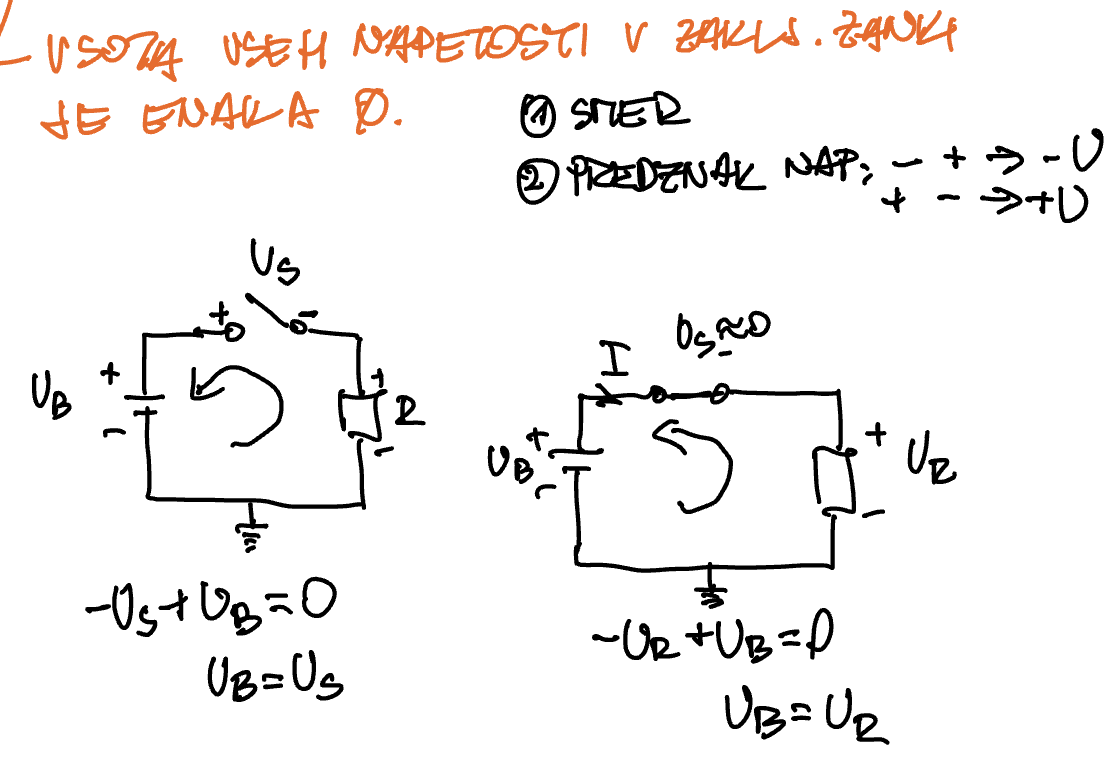 VSOTA VSEH NAPETOSTI V ZAKLJ. ZANKI
JE ENAKA 0.
① SMER
② PREDZNAK NAP: - + → -U
+ - → +U
US
+ -
UB + -
+ R -
I
US≈0
UB + -
+ UR -
-US+UB=0
UB=US
-UR+UB=0
UB=UR